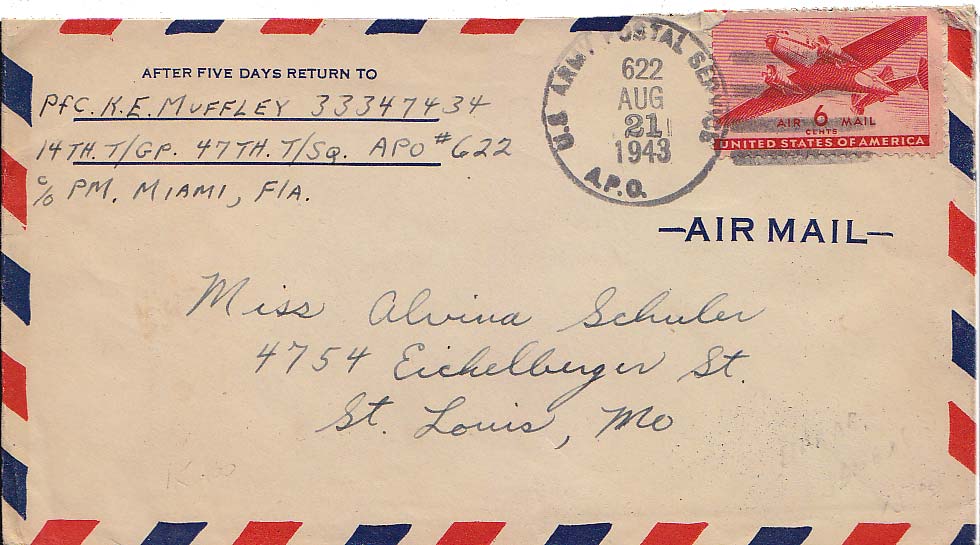 AFTER FIVE DAYS RETURN TO
PfC. K.E. MUFFLEY 33347434
14TH. T/GP. 47TH. T/SQ. APO #622
c/o PM. MIAMI, FlA.
U.S. ARMY POSTAL SERVICE
622
AUG
21
1943
A.P.O.
AIR 6 MAIL
CENTS
UNITED STATES OF AMERICA
–AIR MAIL–
Miss Alvina Schuler
4754 Eichelberger St.
St. Louis, Mo